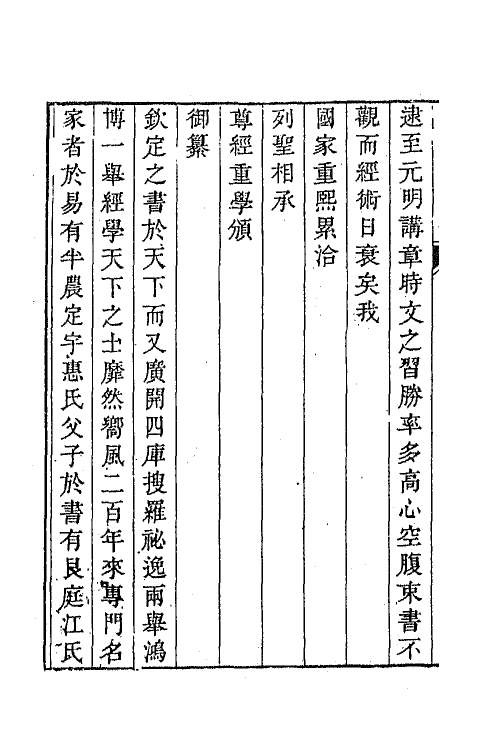 逮至元明講章時文之習勝率多高心空腹束書不
觀而經術日衰矣我
國家重熙累洽
列聖相承
尊經重學頒
御纂
欽定之書於天下而又廣開四庫搜羅祕逸兩舉鴻
博一舉經學天下之士靡然嚮風二百年來專門名
家者於易有半農定宇惠氏父子於書有艮庭江氏